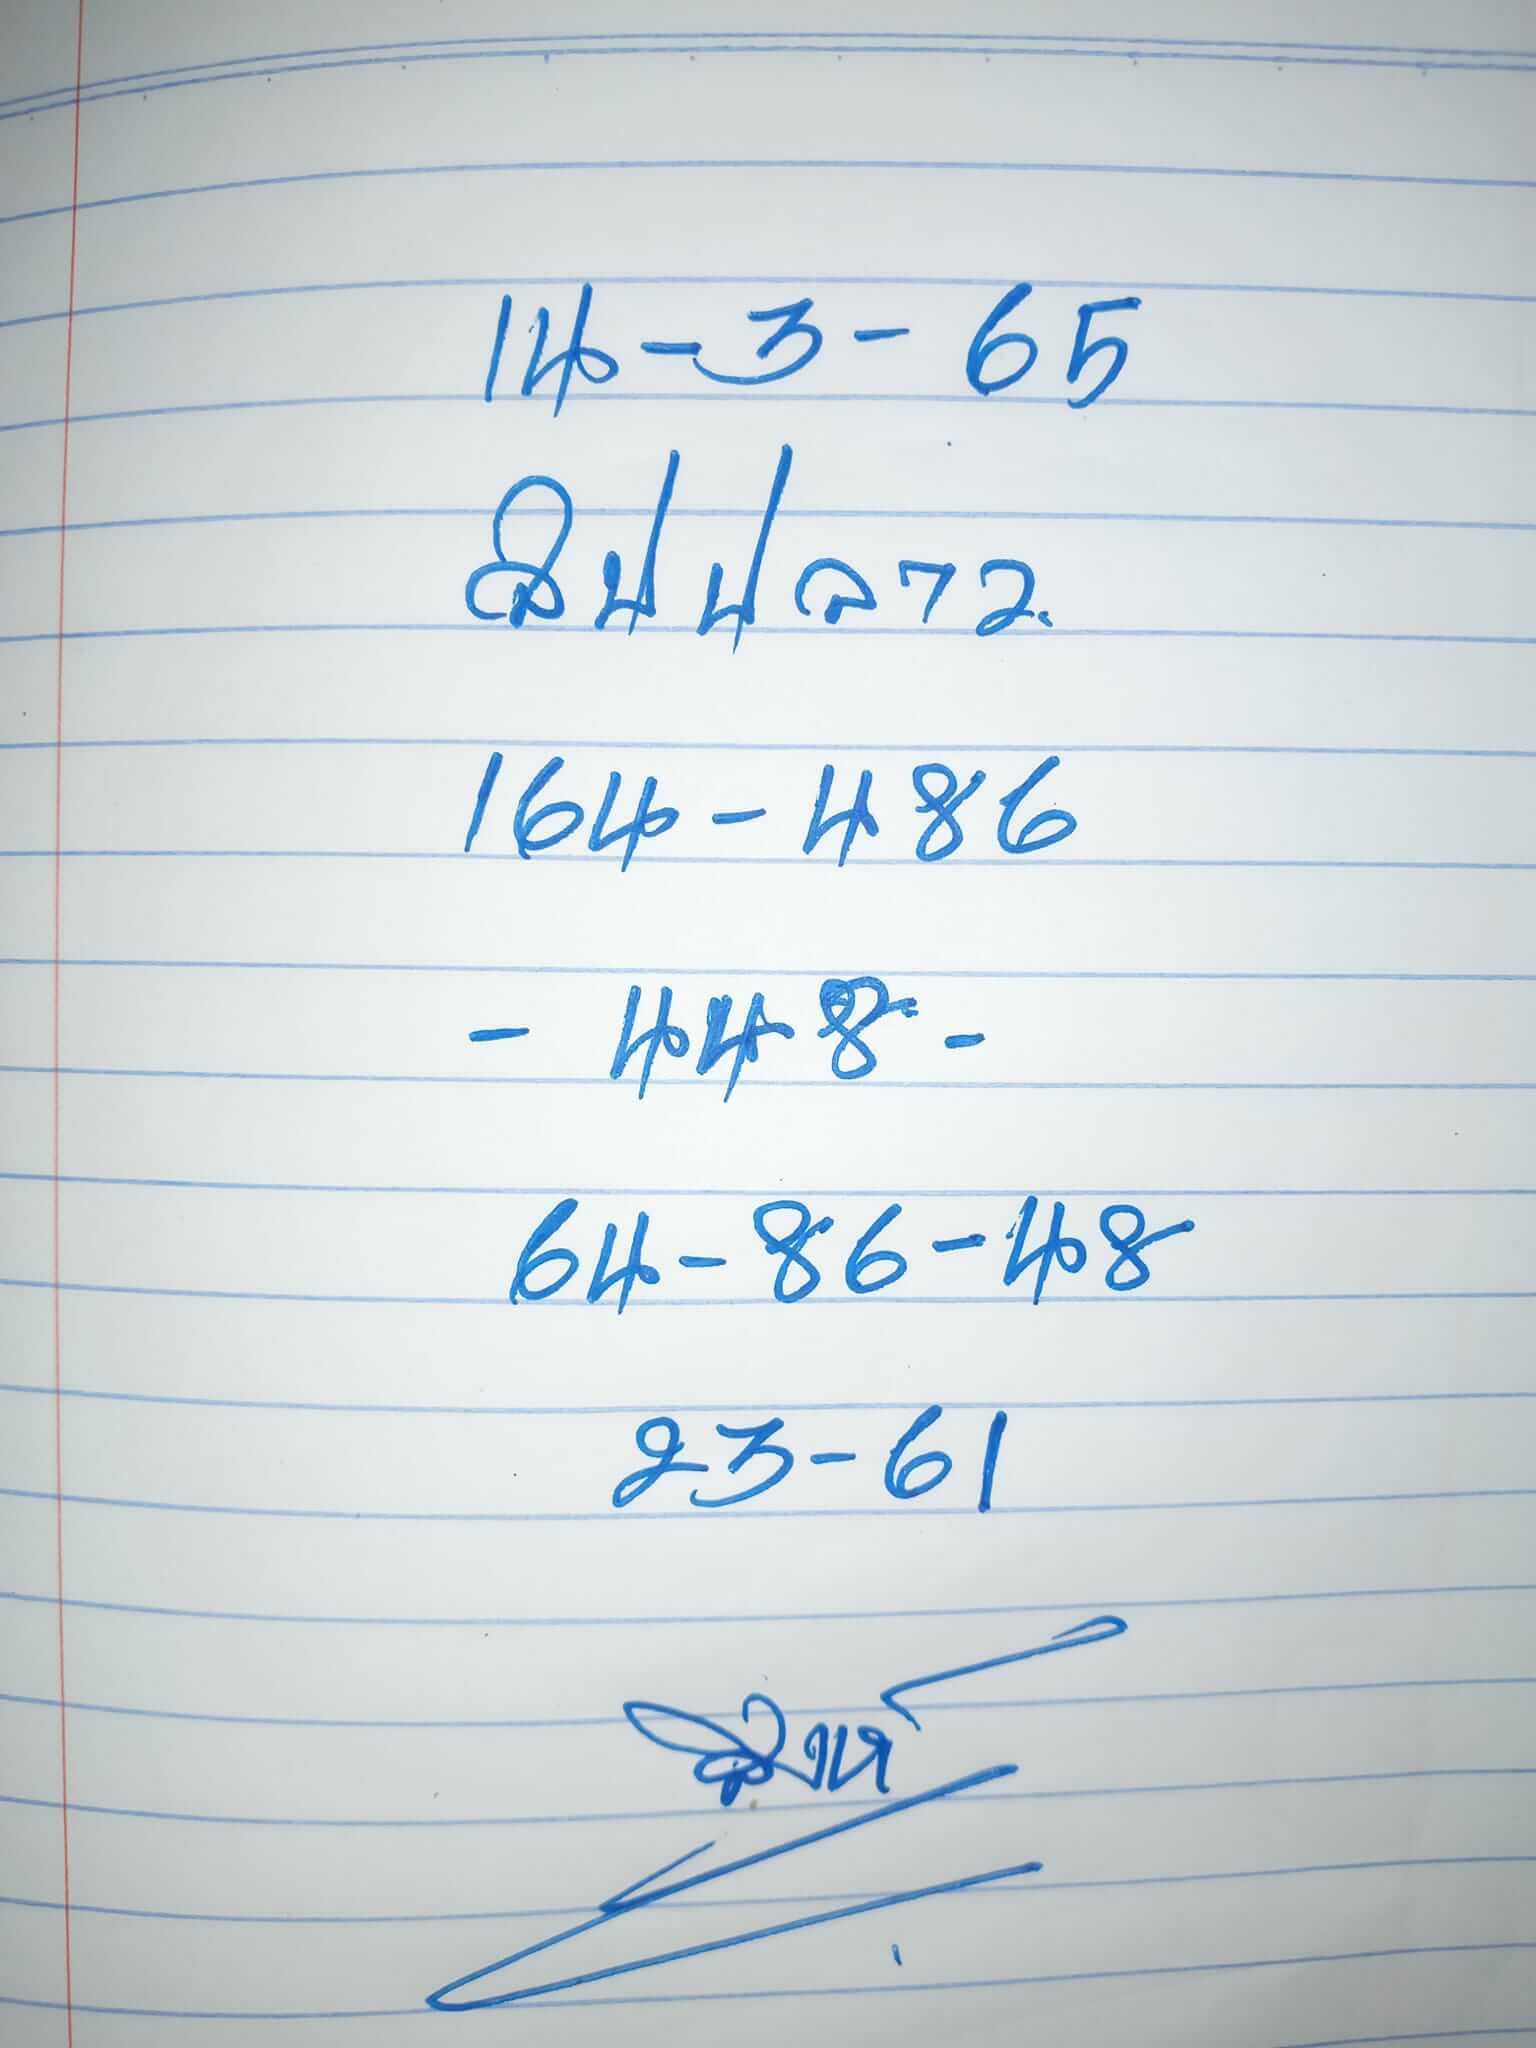 14-3-65
สิปปลาว.
164-486
- 448 -
64-86-48
23-61
สิงห์